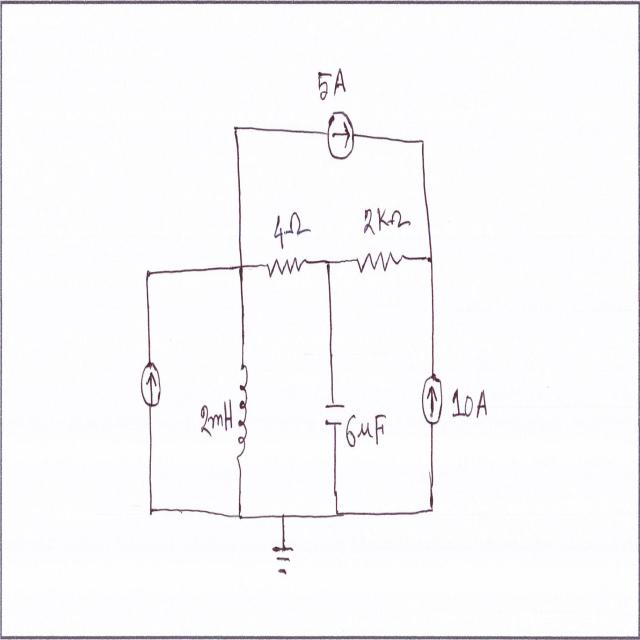 5A
4Ω
2KΩ
2mH
6μF
10A